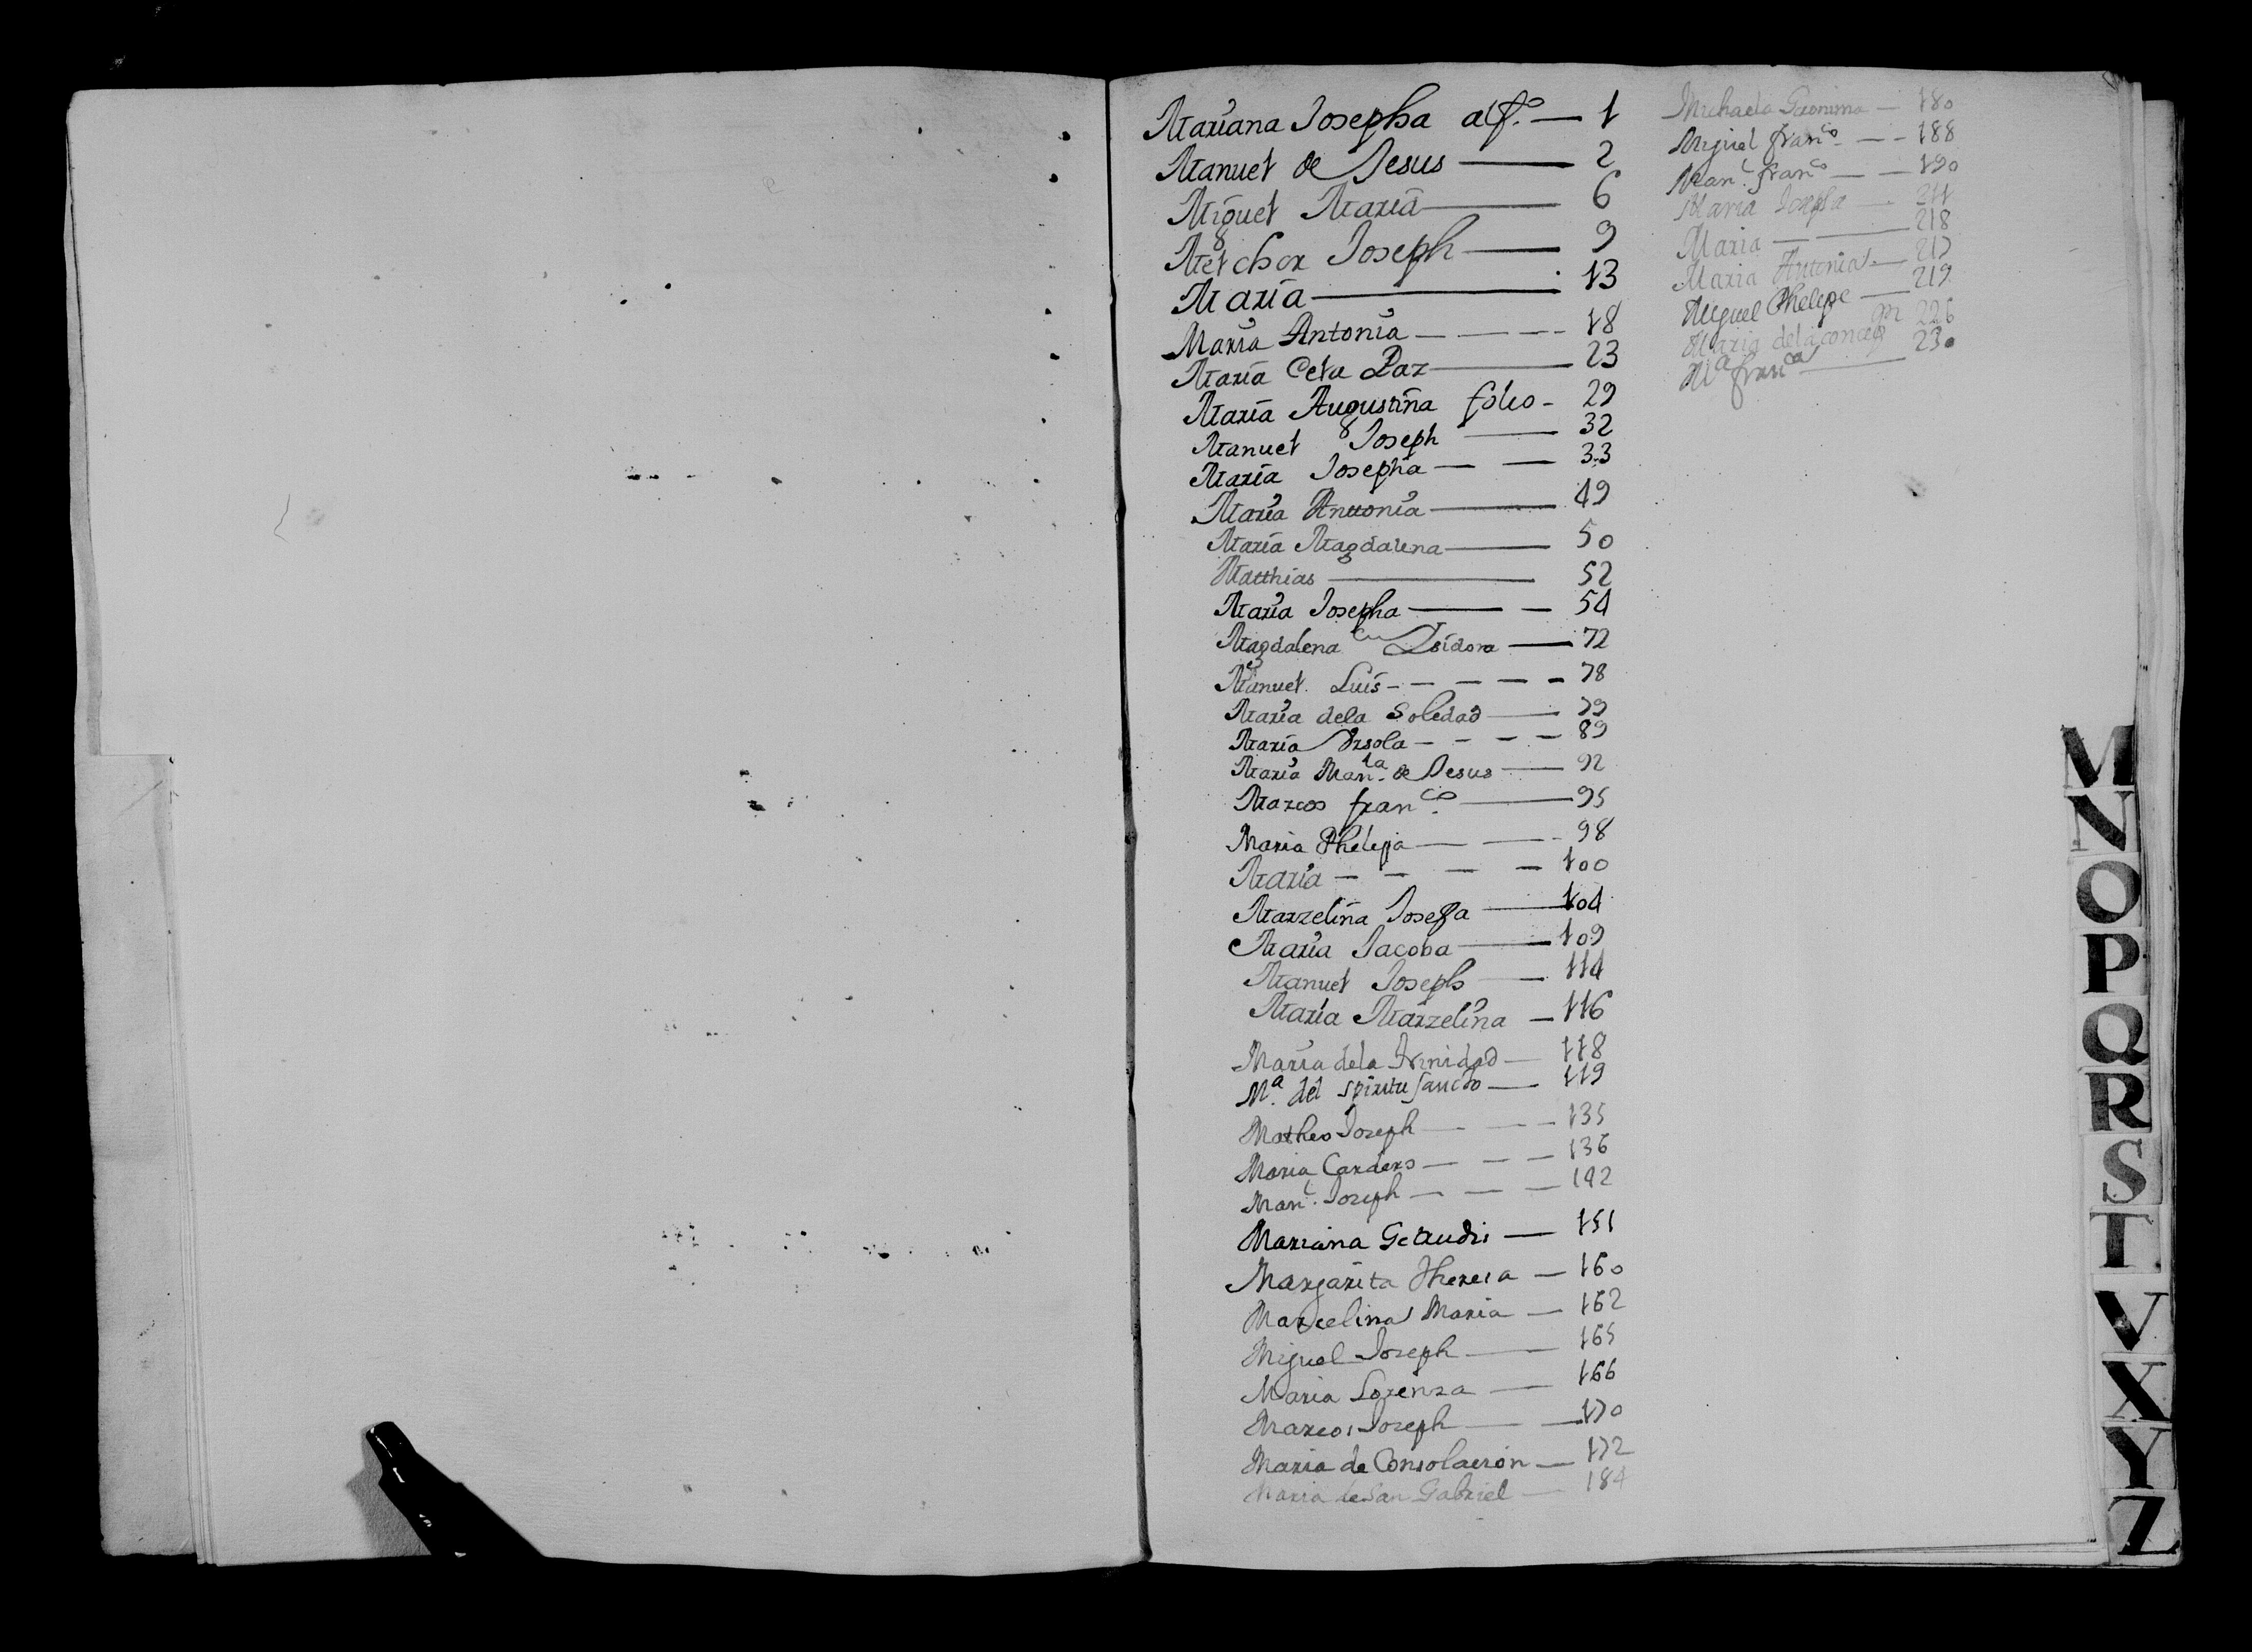 Mariana Josepha al fo. — 1
Manuel de Jesus — 2
Miguel Maria — 6
Melchor Joseph — 9
Maria — 13
Maria Antonia — 18
Maria Paz — 23
Maria Augustina folio - 29
Manuel Joseph — 32
Maria Josepha — 33
Maria Anttonia — 49
Maria Magdalena — 50
Matthias — 52
Maria Josepha — 54
Magdalena Isidora — 72
Manuel Luis — 78
Maria dela Soledad — 79
Maria Ursola — 89
Maria Man.la de Jesus — 92
Marcos fran.co — 95
Maria Phelipa — 98
Maria — 100
Marzelina Josepa — 104
Maria Jacoba — 109
Manuel Joseph — 114
Maria Marzelina — 116
Maria dela trinidad — 118
M.a del Spiritu Sancto — 119
Matheo Joseph — 135
Maria — 136
Man.l Joseph — 142
Mariana — 151
Margarita Theresa — 160
Marcelina Maria — 162
Miguel Joseph — 165
Maria Lorenza — 166
Marcos Joseph — 170
Maria de Consolacion — 172
Maria de San Gabriel — 184
Michaela Geronima — 180
Miguel fran.co — 188
Man.l fran.co — 190
Maria Josepha — 211
Maria — 218
Maria Antonia — 217
Miguel Phelipe — 219
Maria dela concep on 226
M.a fran.ca — 230
M
N
O
P
Q
R
S
T
V
X
Y
Z